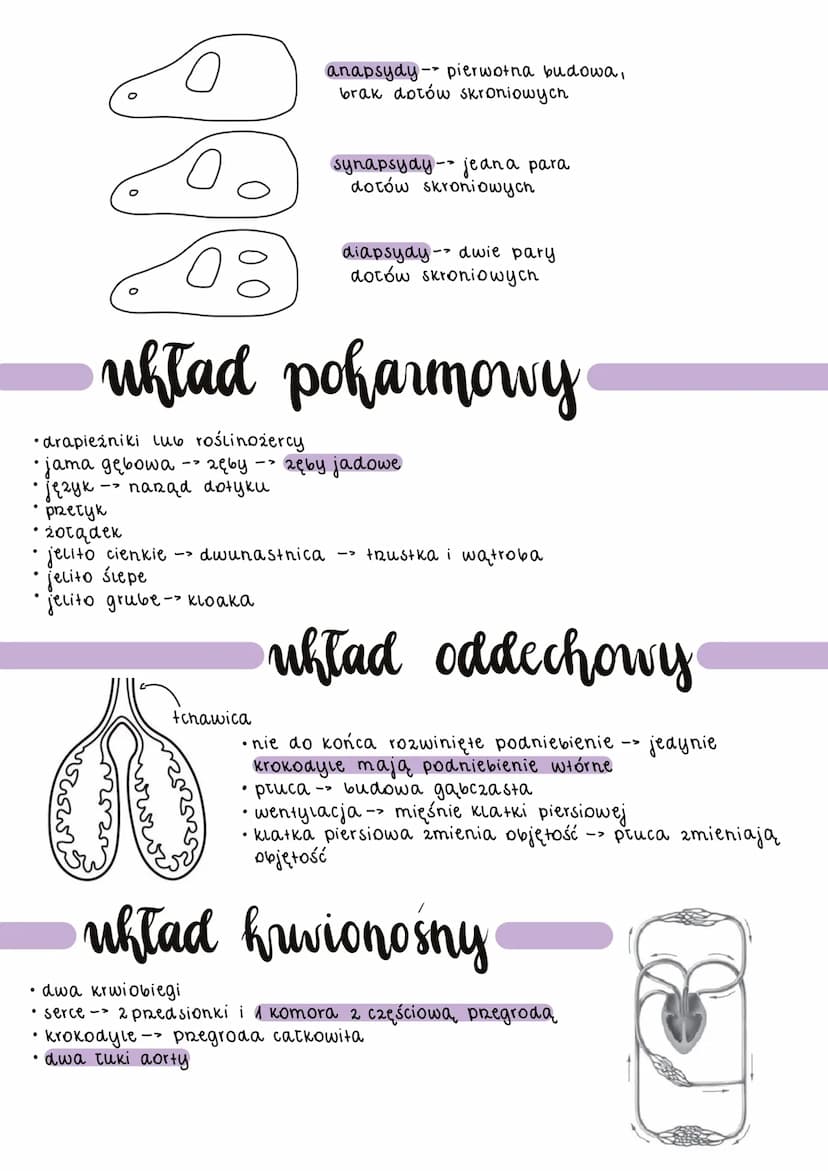 anapsydy -> pierwotna budowa,
brak dołów skroniowych
synapsydy -> jedna para
dołów skroniowych
diapsydy -> dwie pary
dołów skroniowych
układ pokarmowy
• drapieżniki lub roślinożercy
• jama gębowa -> zęby -> zęby jadowe
• język -> narząd dotyku
• przełyk
• żołądek
• jelito cienkie -> dwunastnica -> trzustka i wątroba
• jelito ślepe
• jelito grube -> kloaka
układ oddechowy
tchawica
• nie do końca rozwinięte podniebienie -> jedynie
krokodyle mają podniebienie wtórne
• płuca -> budowa gąbczasta
• wentylacja -> mięśnie klatki piersiowej
• klatka piersiowa zmienia objętość -> płuca zmieniają
objętość
układ krwionośny
• dwa krwiobiegi
• serce -> 2 przedsionki i 1 komora z częściową przegrodą
• krokodyle -> przegroda całkowita
• dwa łuki aorty